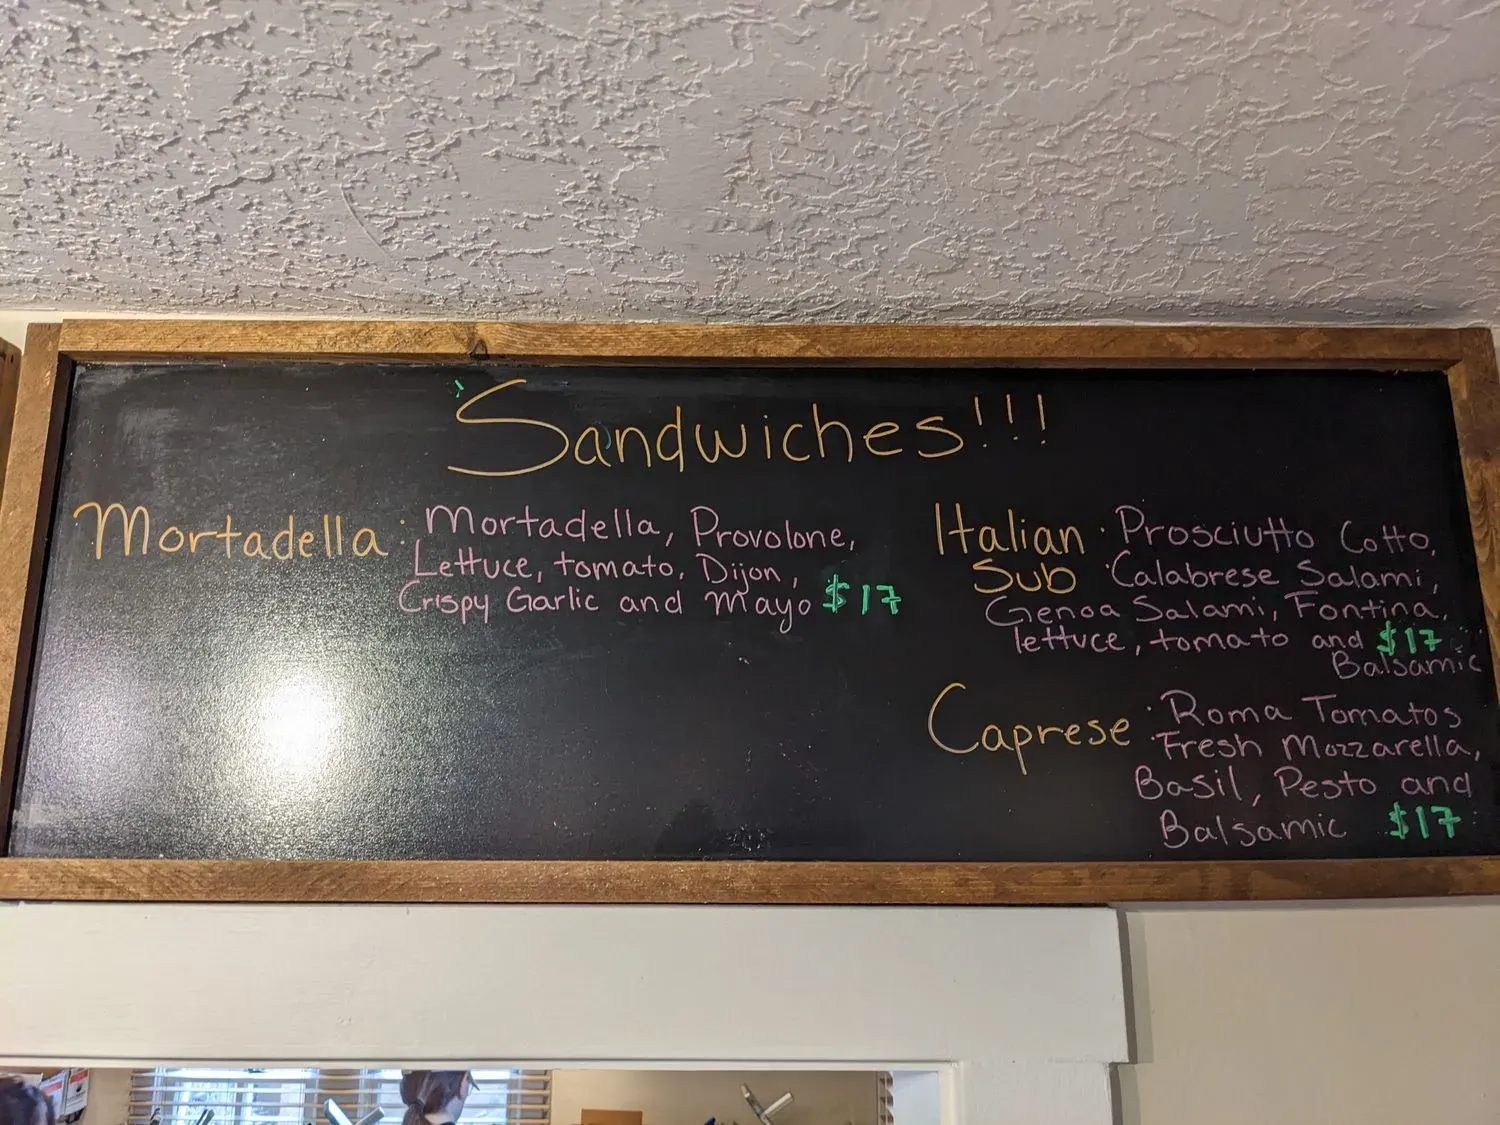 Sandwiches!!!
Mortadella: Mortadella, Provolone,
Lettuce, tomato, Dijon,
Crispy Garlic and Mayo $17
Italian Sub · Prosciutto Cotto,
Calabrese Salami,
Genoa Salami, Fontina,
lettuce, tomato and $17
Balsamic
Caprese · Roma Tomatos
Fresh Mozzarella,
Basil, Pesto and
Balsamic $17